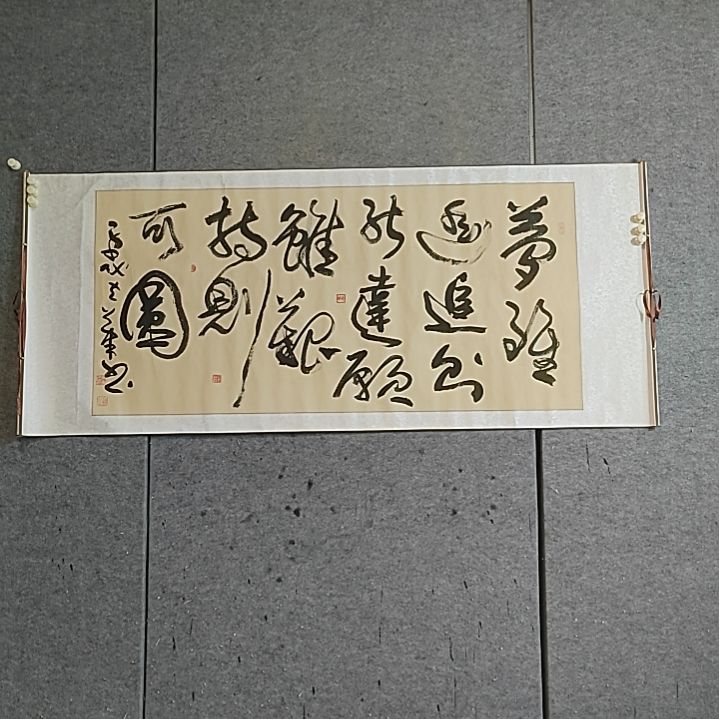 夢雖
遥追則
能達願
雖艱
持則
可圓